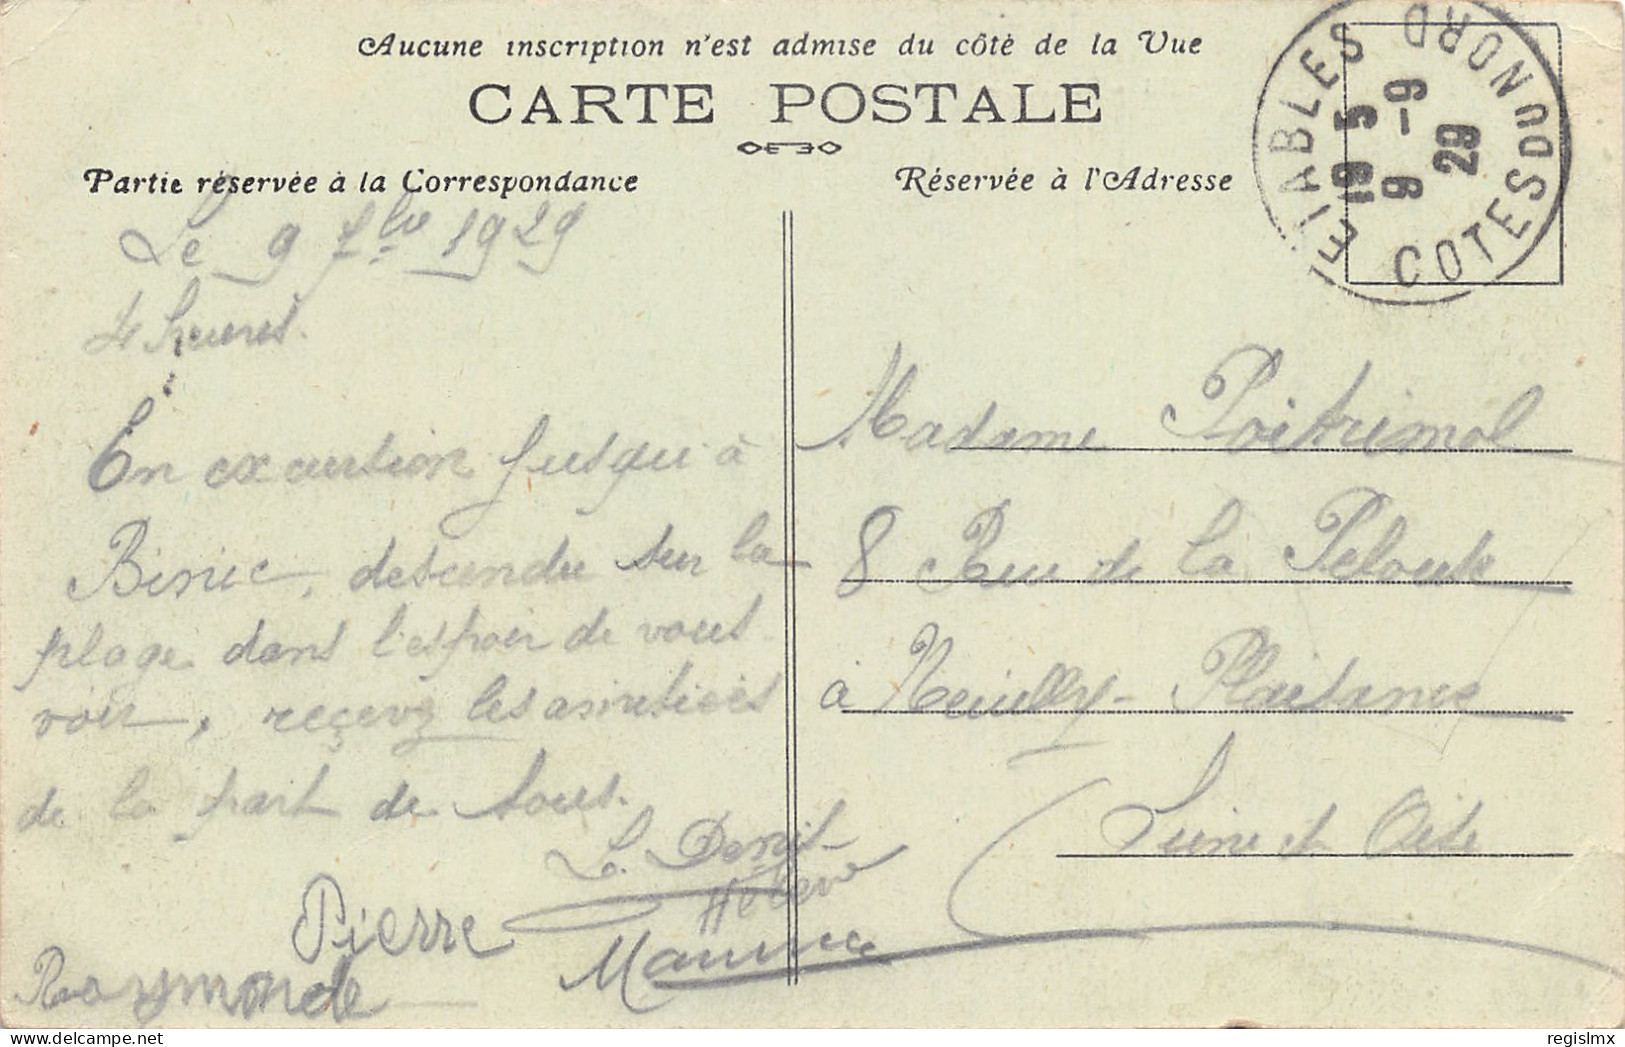 Aucune inscription n'est admise du côté de la Vue
CARTE POSTALE
Partie réservée à la Correspondance
Réservée à l'Adresse
ETABLES COTES DU NORD
19 5
9 -9
29
Le 9 1929
4 heures.
En excurtion jusqu'à
Binic, descendu sur la
plage dans l'espoir de vous
voir, reçevez les amitiées
de la part de tous.
Pierre
Maurice
Raymonde
Madame Poitrimol
8 Rue de la Pelouse
à Neuilly-Plaisance
Seine et Oise
regislmx